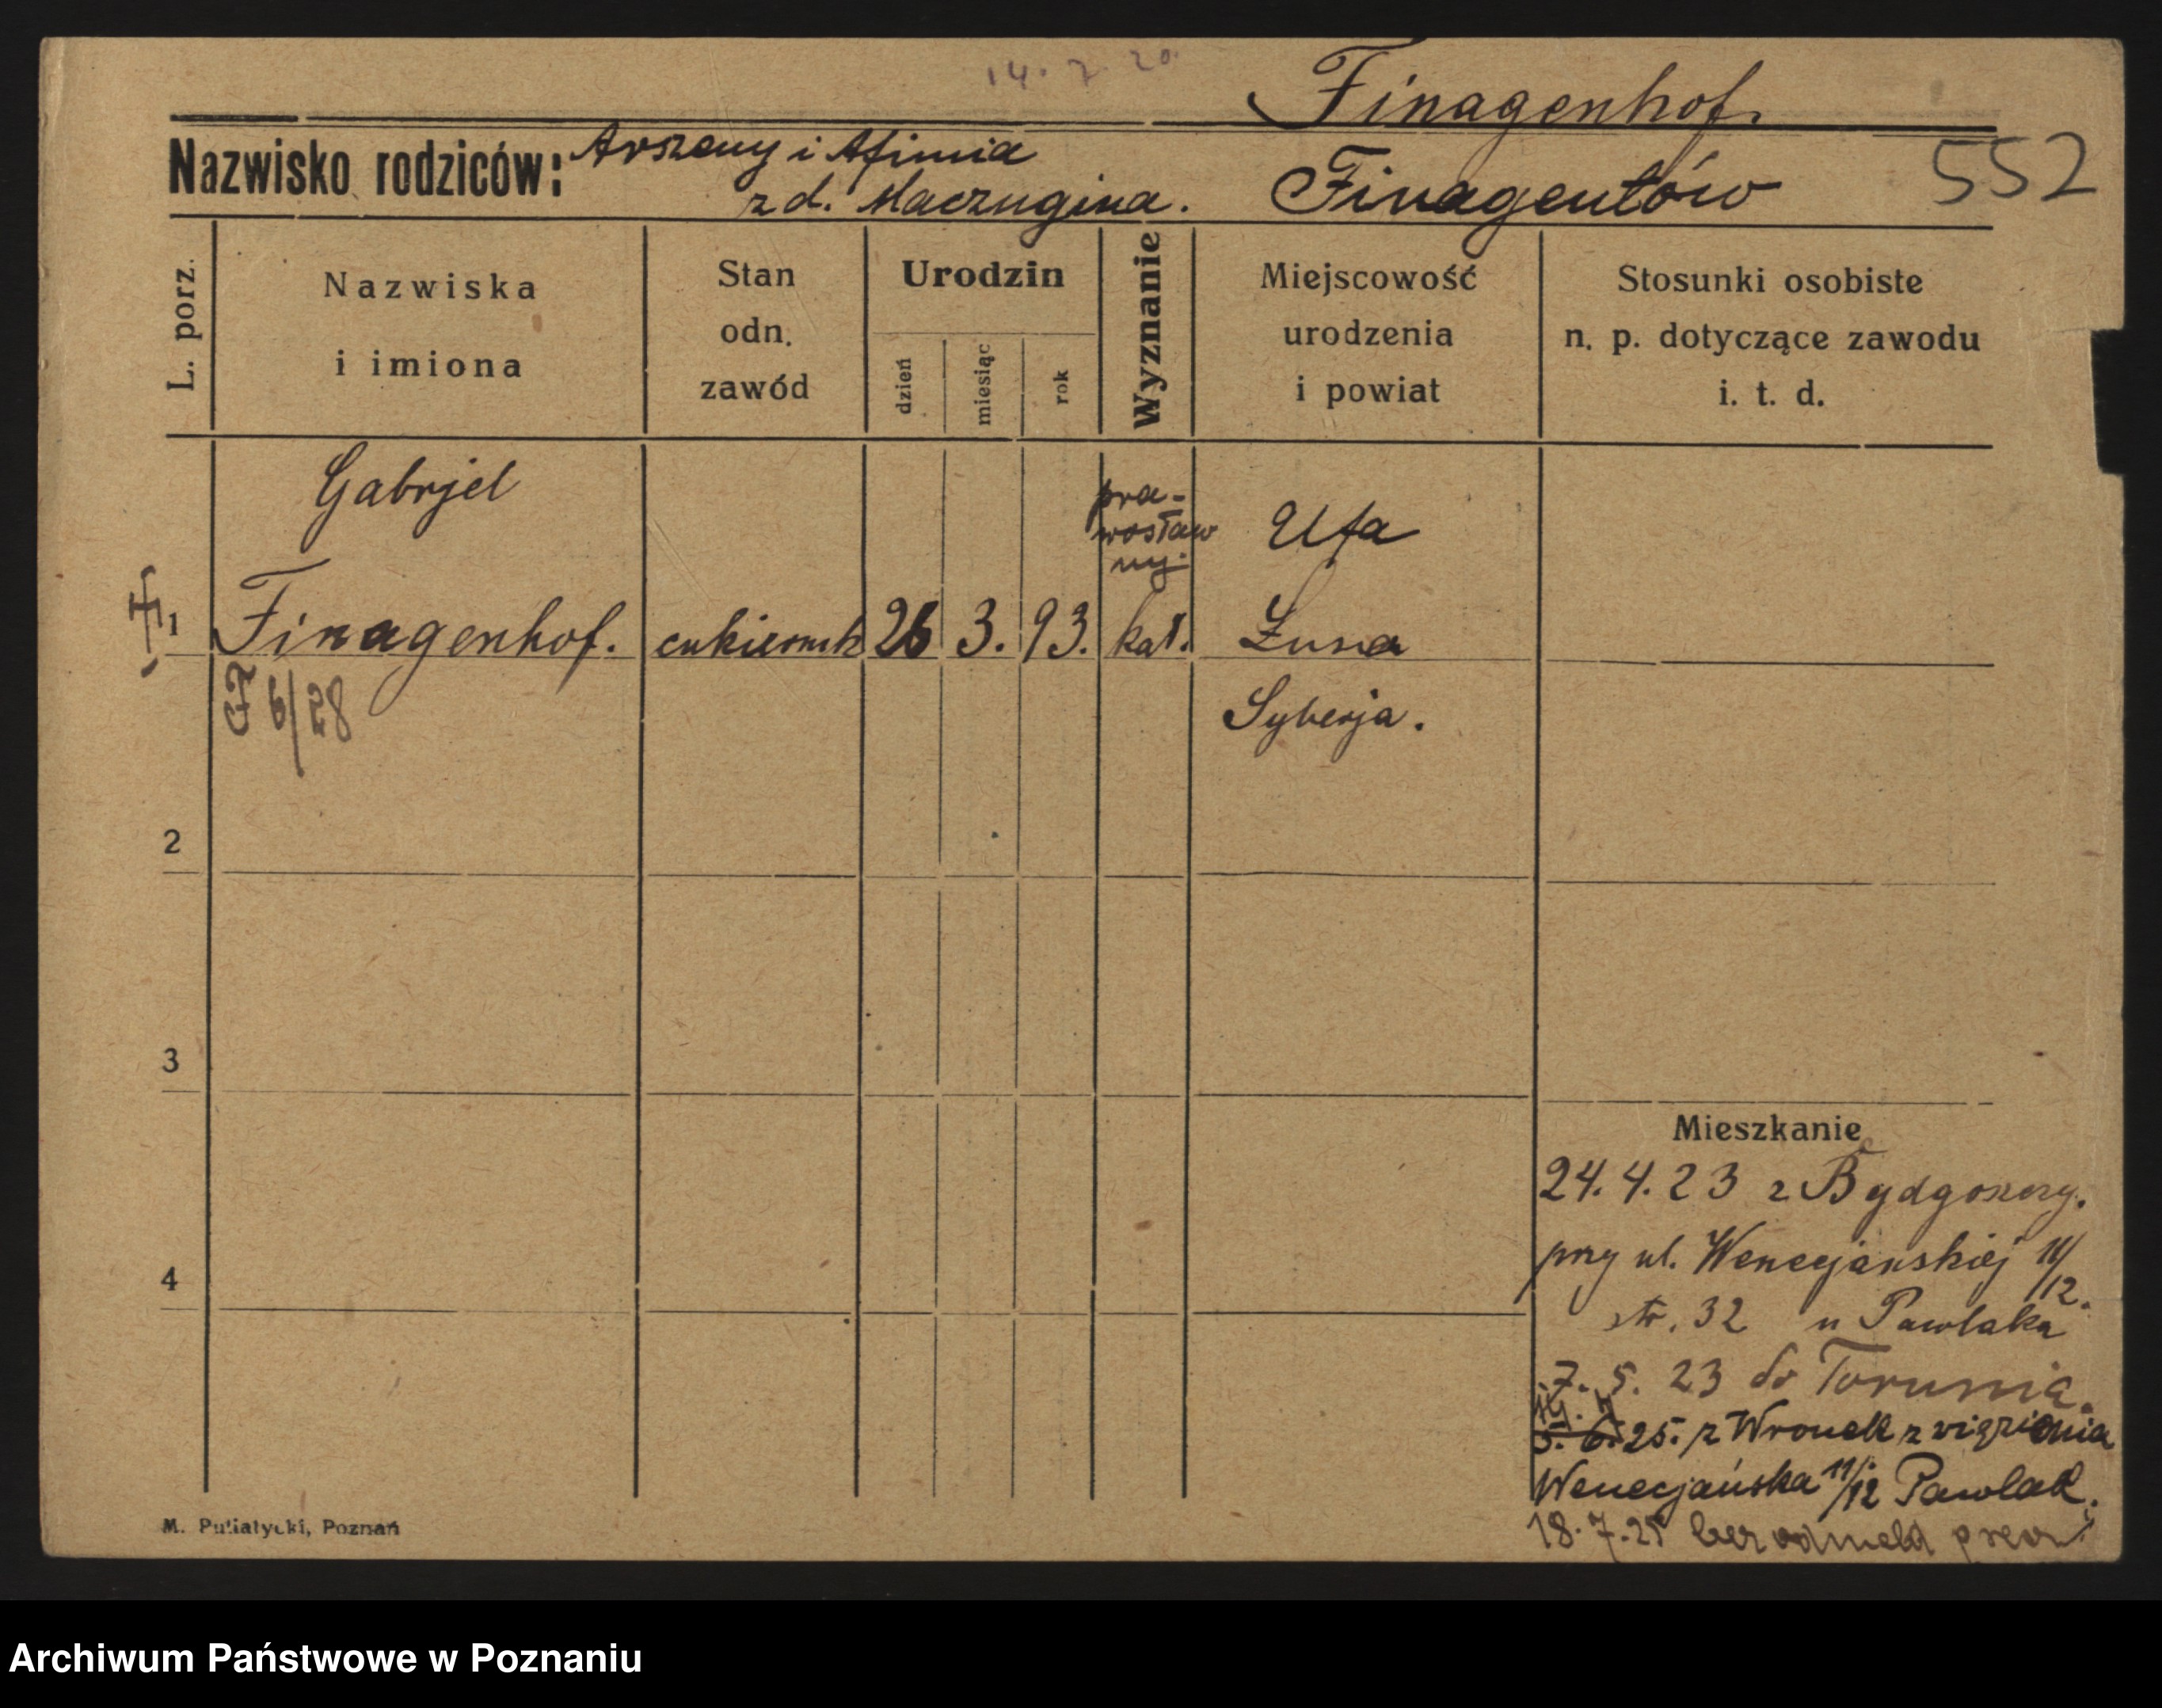 14. 7. 20.
Finagenhof.
Nazwisko rodziców: Arszeny i Afimia
z d. Maczugina. Finagentów 552
L. porz.
Nazwiska
i imiona
Stan
odn.
zawód
Urodzin
dzień
miesiąc
rok
Wyznanie
Miejscowość
urodzenia
i powiat
Stosunki osobiste
n. p. dotyczące zawodu
i. t. d.
Gabrjel
pra-
wosław
ny.
Ufa
1 Finagenhof. cukiernik 26 3. 93. kat. Łusna
6/28
Syberja.
2
3
4
Mieszkanie
24. 4. 23 z Bydgoszczy.
przy ul. Wenecjańskiej 11/12.
str. 32 u Pawlaka
7. 5. 23 do Torunia.
5. 6. 25. z Wronek z więzienia
Wenecjańska 11/12 Pawlak.
18. 7. 25 bez odmeld
M. Putiatycki, Poznań
Archiwum Państwowe w Poznaniu